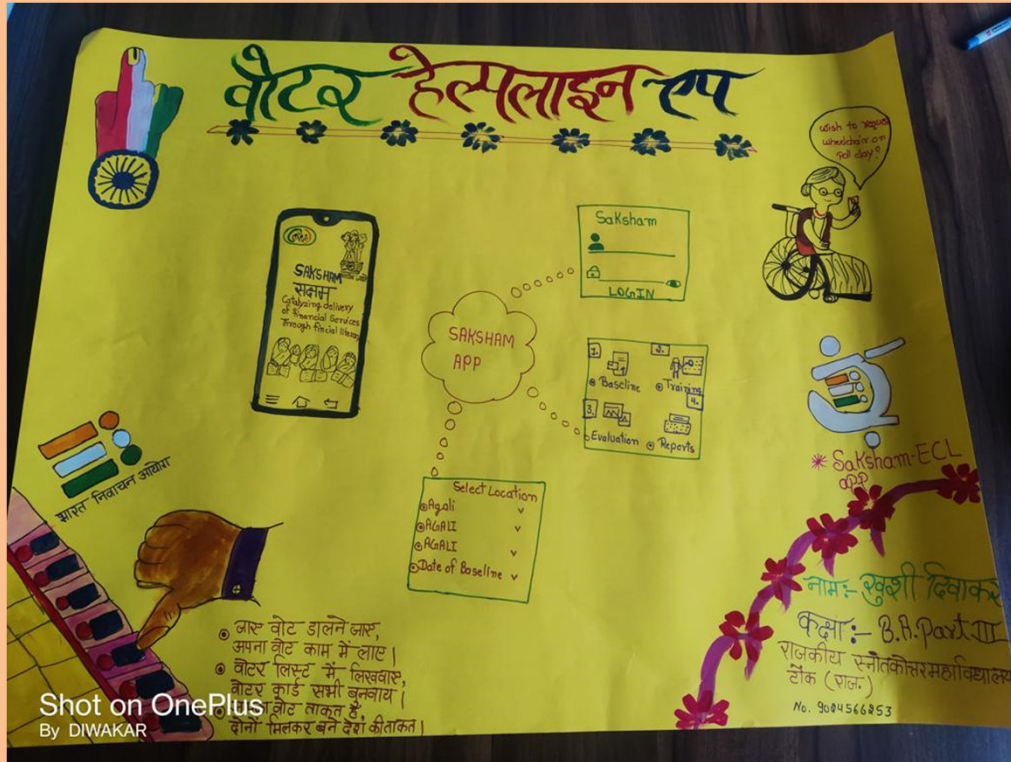 वोटर हेल्पलाइन एप
wish to request
wheelchair on
Poll day?
SAKSHAM
सक्षम
Catalyzing delivery
of financial Services
Through fincial literacy
SAKSHAM
APP
Saksham
LOGIN
1.
2.
Baseline
Training
3.
4.
Evaluation
Reports
Select Location
Agali
AGALI
AGALI
Date of Baseline
भारत निर्वाचन आयोग
* Saksham-ECL
app
जाए वोट डालने जाए,
अपना वोट काम में लाए।
वोटर लिस्ट में लिखवाए,
वोटर कार्ड सभी बनवाय।
वोट ताकत है,
दोनों मिलकर बने देश की ताकत।
नाम:- खुशी दिवाकर
कक्षा:- B.A. Part III
राजकीय स्नोतकोत्तर महाविद्यालय
टोंक (राज.)
No. 9024566253
Shot on OnePlus
By DIWAKAR